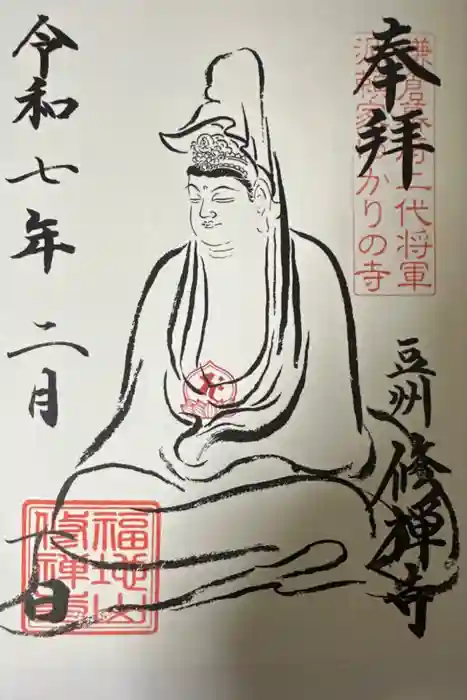 奉拝
鎌倉幕府二代将軍
源頼家ゆかりの寺
豆州 修禅寺
令和七年 二月 十日
福地山
修禅寺